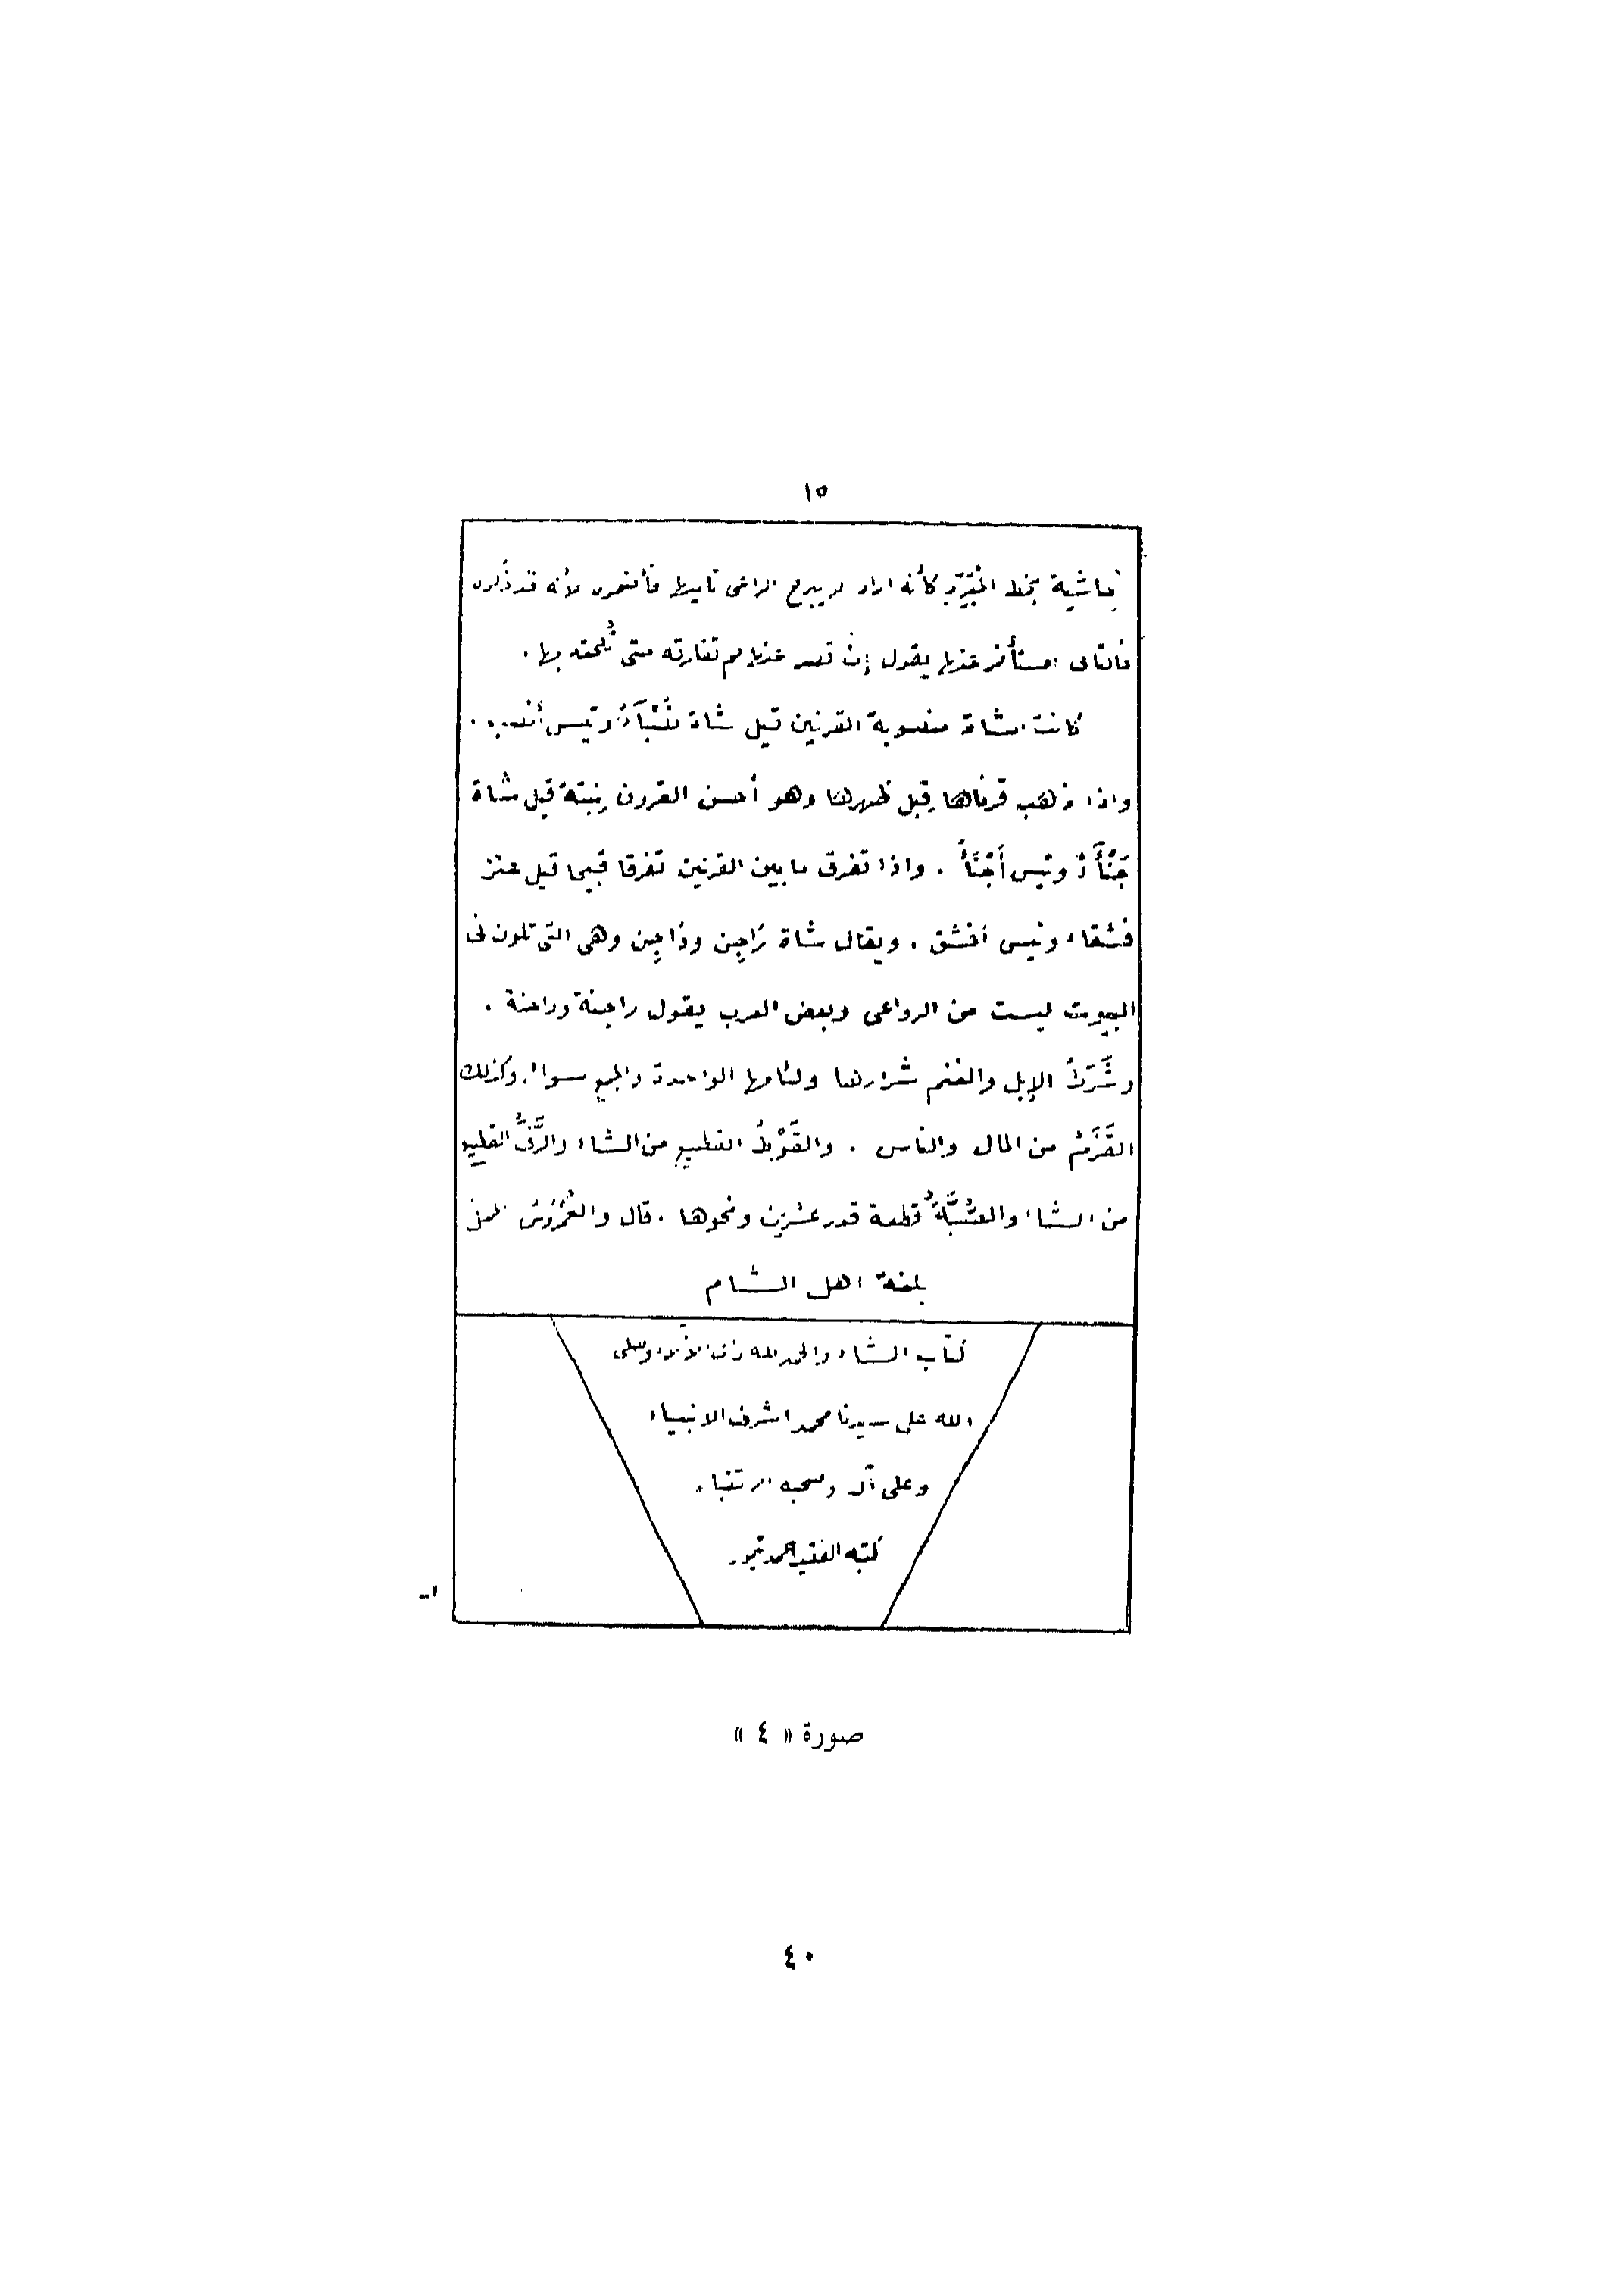 ١٥
حاشية بخط المبرّد كأنه اراد لا يبرح الراعى تاليها فأضمر لأنه قد ذكره
فالتالى المستأخر عنها يقول إن تصد عنها لم تفارقه حتى تُلحقه بها .
كانت الشاة منصوبة القرنين قيل شاة نَصْبَآءُ وتيس أنصب .
واذا ذهب قرناها قِبل ظهرها وهو أحسن القرون نِبتةً قيل شاة
جَنْآءُ وتيس أَجْنَأُ . واذا تفرق ما بين القرنين تفرقا قبيحا قيل عنز
فشقاء وتيس افشق . ويقال شاة رَاجِن ودَاجِن وهى التى تكون فى
البيوت ليست من الرواعى وبعض العرب يقول راجنة وداجنة .
وشَرَطُ الإبل والغنم شرارها ولئامها الواحدة والجمع سواء . وكذلك
القَزَمُ من المال والناس . والقَوْطُ القطيع من الشاء والرَّفُّ القطيع
من الشاء والصُّبَّةُ قطعة قدر عشرين ونحوها . قال والعُمْرُوسُ الحمل
بلغة اهل الشام
كتاب الشاء والحمد لله وصلى
الله على سيدنا محمد اشرف الانبياء
وعلى آله وصحبه الاتقياء
كتبه الفقير احمد تيمور
صورة « ٤ »
٤٠